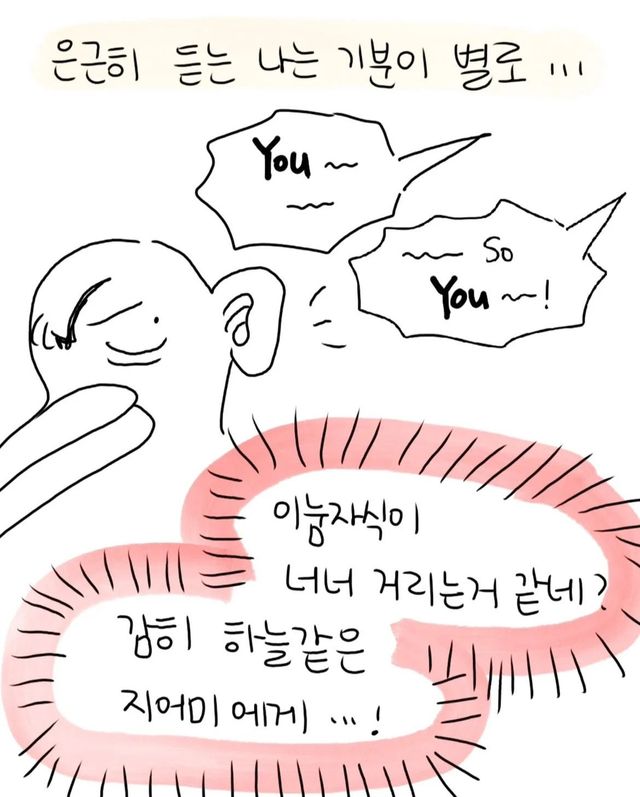 은근히 듣는 나는 기분이 별로 ...
You ~
~
~ So
You ~!
이눔자식이
너너 거리는거 같네?
감히 하늘같은
지어미에게 ...!